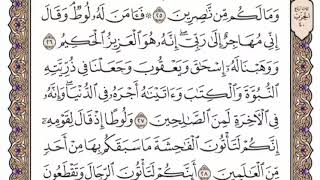 وَمَا لَكُم مِّن نَّٰصِرِينَ ٢٥ ۞ فَـَٔامَنَ لَهُۥ لُوطٌ ۘ وَقَالَ
إِنِّى مُهَاجِرٌ إِلَىٰ رَبِّىٓ ۖ إِنَّهُۥ هُوَ ٱلْعَزِيزُ ٱلْحَكِيمُ ٢٦
وَوَهَبْنَا لَهُۥٓ إِسْحَٰقَ وَيَعْقُوبَ وَجَعَلْنَا فِى ذُرِّيَّتِهِ
ٱلنُّبُوَّةَ وَٱلْكِتَٰبَ وَءَاتَيْنَٰهُ أَجْرَهُۥ فِى ٱلدُّنْيَا ۖ وَإِنَّهُۥ
فِى ٱلْءَاخِرَةِ لَمِنَ ٱلصَّٰلِحِينَ ٢٧ وَلُوطًا إِذْ قَالَ لِقَوْمِهِۦٓ
إِنَّكُمْ لَتَأْتُونَ ٱلْفَٰحِشَةَ مَا سَبَقَكُم بِهَا مِنْ أَحَدٍ
مِّنَ ٱلْعَٰلَمِينَ ٢٨ أَئِنَّكُمْ لَتَأْتُونَ ٱلرِّجَالَ وَتَقْطَعُونَ